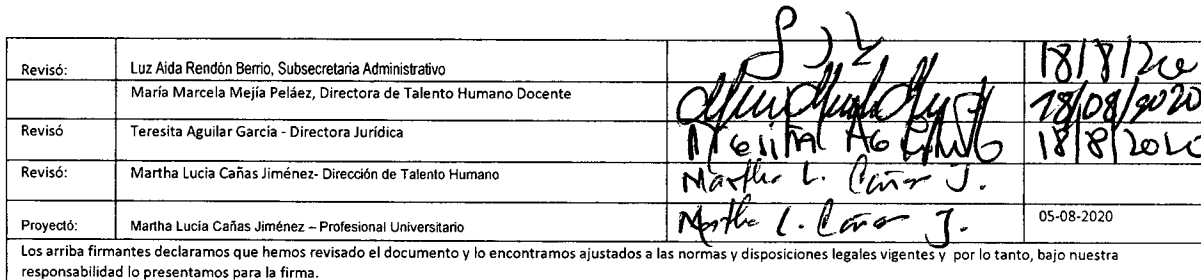 Revisó: Luz Aida Rendón Berrio, Subsecretaria Administrativo 18/8/20
María Marcela Mejía Peláez, Directora de Talento Humano Docente 18/08/2020
Revisó Teresita Aguilar García - Directora Jurídica 18/8/2020
Revisó: Martha Lucia Cañas Jiménez- Dirección de Talento Humano Martha L. Cañas J.
Proyectó: Martha Lucía Cañas Jiménez – Profesional Universitario Martha L. Cañas J. 05-08-2020
Los arriba firmantes declaramos que hemos revisado el documento y lo encontramos ajustados a las normas y disposiciones legales vigentes y por lo tanto, bajo nuestra
responsabilidad lo presentamos para la firma.